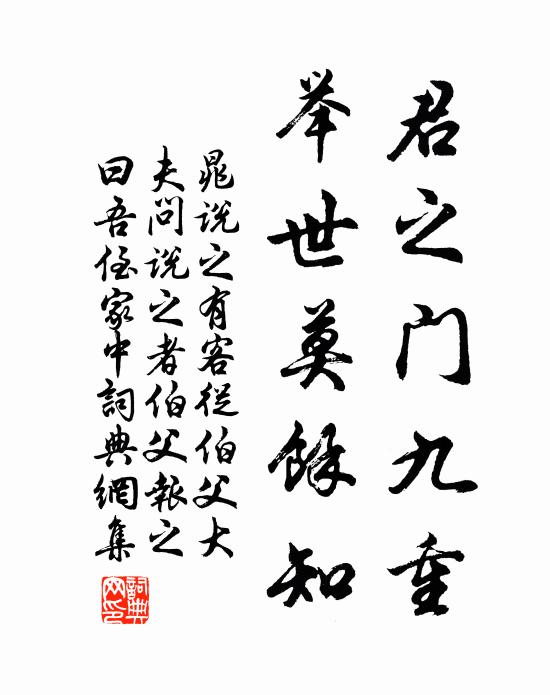 君之门九重
举世莫餘知
晁说之有客從伯父大
夫问说之者伯父報之
曰吾侄家中詞典網集
詞典网印